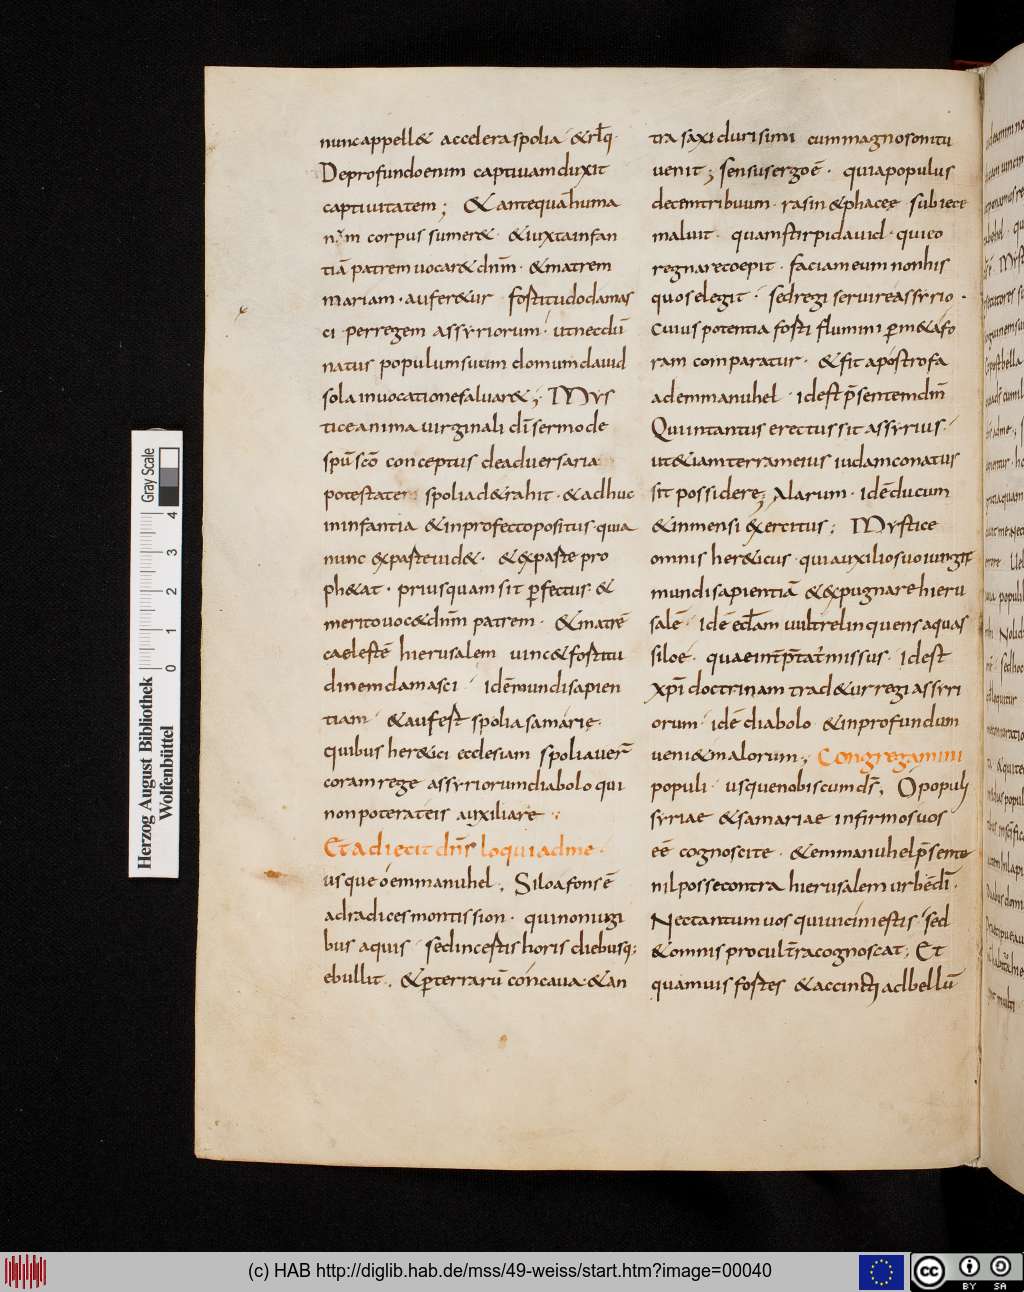 nuncappell& accelera spolia · &rłq·
Deprofundo enim captiuam duxit
captiuitatem ; & antequā huma
num corpus sumer&· &iuxta infan
tiā patrem uocar& dnm̄ · &matrem
mariam · aufer&ur fostitudo damas
ci · perregem assyriorum · ut necdū
natus populum suum domum dauid
sola inuocatione saluar& ; Mys
tice anima uirginali dī sermo de
spū scō conceptus de aduersaria
potestate spolia d&rahit · & adhuc
in infantia &inprofecto positus · quia
nunc expaste uid& · & expaste pro
ph&at · priusquam sit pfectus · &
merito uoc& dnm̄ patrem · &matrē
caelestē hierusalem uinc& fostitu
dinem damasci · idē mundi sapien
tiam · &aufest spolia samarie ·
quibus her&ici ecclesiam spoliauer̄
coram rege assyriorum diabolo qui
non poterat eis auxiliare ·
Et adiecit dn̄s loqui ad me ·
usque o emmanuhel . Siloa fons ē
ad radices montis sion · qui non iugi
bus aquis · sed incestis horis diebusq;
ebullit . &p terrarū concaua · &an
tra saxi durisimi cum magno sonitu
uenit ; sensus ergo ē · quia populus
decem tribuum · rasin &phacee subiece
maluit · quam stirpi dauid · qui eo
regnare coepit · faciam eum non his
quos elegit · sed regi seruire assyrio ·
Cuius potentia fosti flumini pm& a fo
ram comparatur · &fit apostrofa
ad emmanuhel · id est p̄sentem dnm̄
Qui in tantus erectus sit assyrius ·
ut &iam terram eius iudam conatus
sit possidere ; Alarum · idē ducum
&inmensi exercitus ; Mystice
omnis her&icus · qui auxilio suo iungit
mundi sapientiā & expugnare hieru
salē · idē eclam uult relinquens aquas
siloe · quae int̄p̄tat̄ missus · id est
xp̄i doctrinam trad&ur regi assyri
orum · idē diabolo &inprofundum
ueni& malorum ; Congregamini
populi · usque nobiscum ds̄ ; O populi
syriae &samariae infirmos uos
eē cognoscite · &emmanuhel p̄sente
nil posse contra hierusalem urbē dī ·
Nec tantum uos qui uicini estis · sed
&omnis procul t̄ra cognoscat ; Et
quamuis fostes &accincti ad bellū
Herzog August Bibliothek
Wolfenbüttel
0 1 2 3 4
Gray Scale
(c) HAB http://diglib.hab.de/mss/49-weiss/start.htm?image=00040
cc BY SA